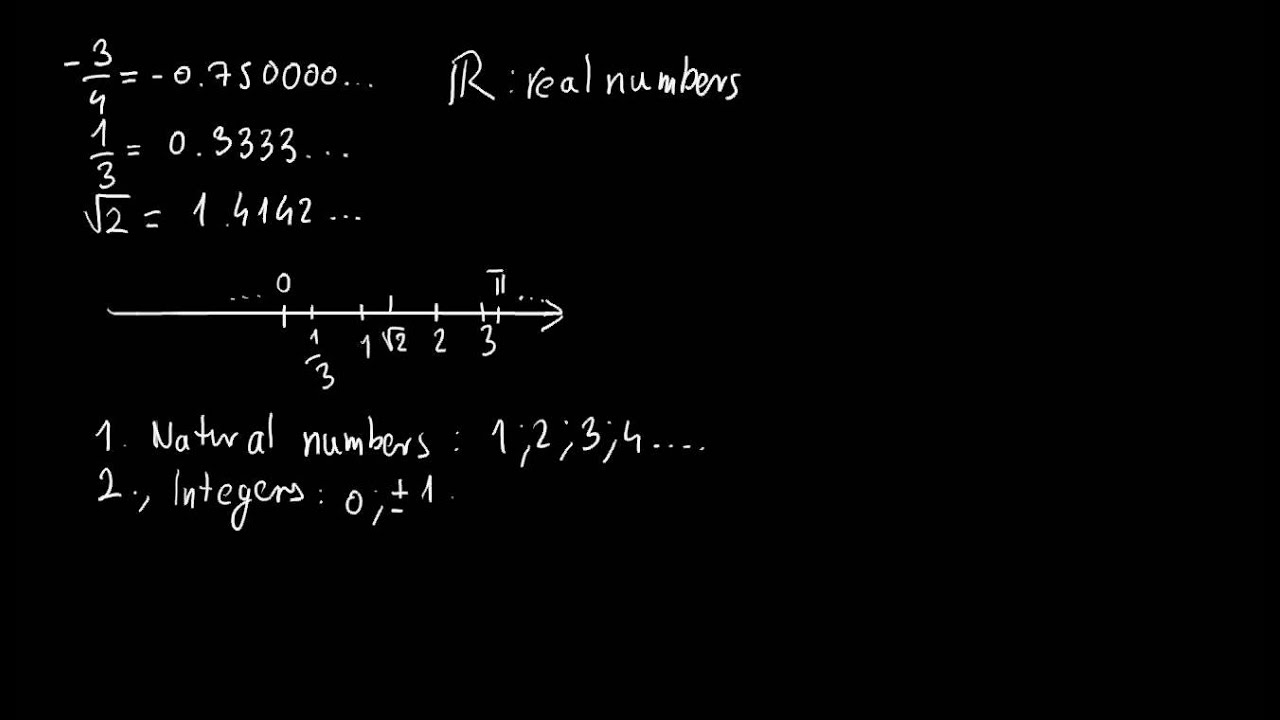 -3/4 = -0.750000... ℝ : real numbers
1/3 = 0.3333...
√2 = 1.4142...
... 0 π ...
1/3 1 √2 2 3
1. Natural numbers : 1;2;3;4....
2., Integers: 0;±1.